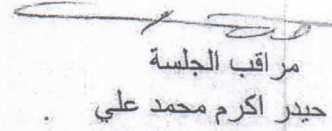 مراقب الجلسة
حيدر اكرم محمد علي